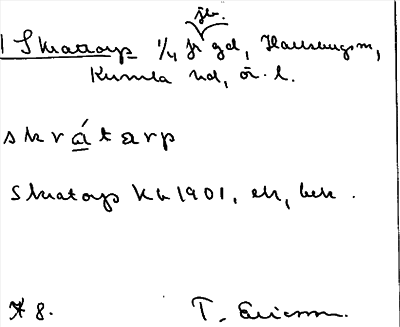 jb.
1 Skratorp 1/4 fr gd, Hallsbergs m,
Kumla hd, ör. l.
s k r á t a r p
Skratorp Kb 1901, ek, bek.
T. Ericson.